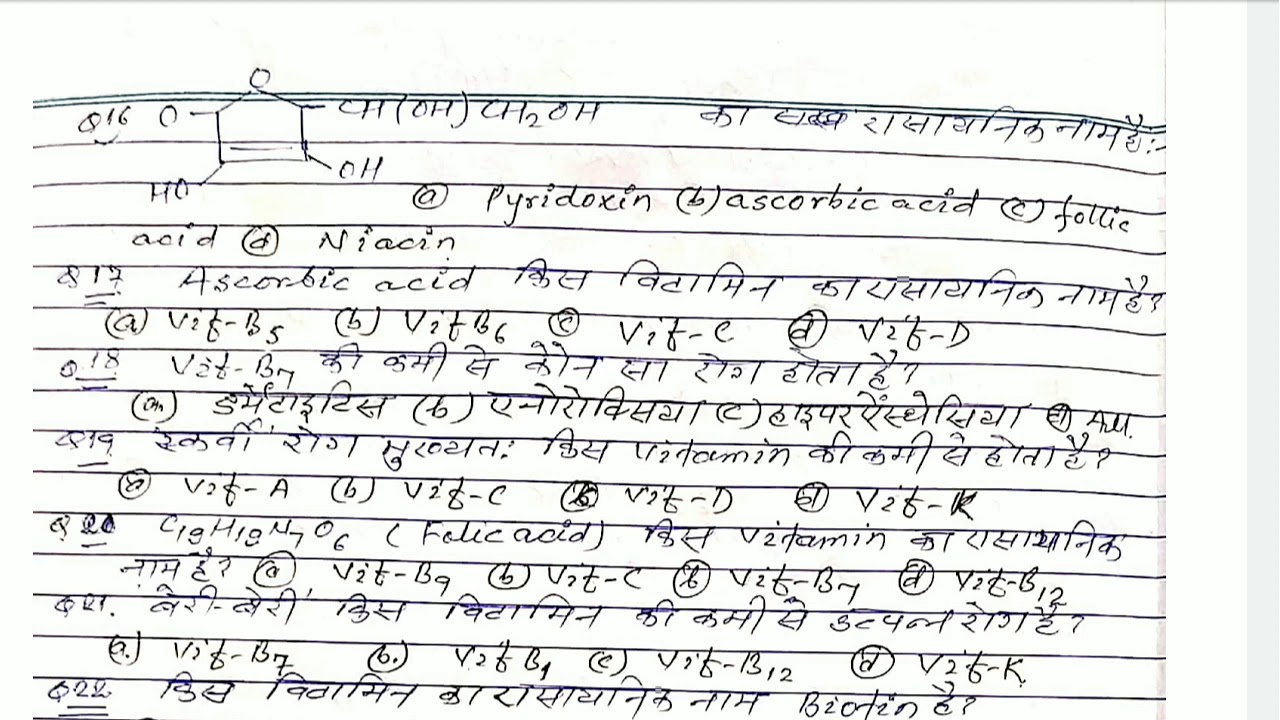 O
Q16 O CH(OH)CH₂OH का रासायनिक नाम है:-
HO OH
(a) Pyridoxin (b) ascorbic acid (c) follic
acid (d) Niacin
Q17 Ascorbic acid किस विटामिन का रासायनिक नाम है?
(a) Vit-B5 (b) Vit B6 (c) Vit-C (d) Vit-D
Q.18 Vit-B7 की कमी से कौन सा रोग होता है?
(a) डर्मेटाइटिस (b) एनोरोक्सिया (c) हाइपरऐंस्थेसिया (d) All.
Q19 स्कर्वी रोग मुख्यत: किस Vitamin की कमी से होता है?
(a) Vit-A (b) Vit-C Vit-D (d) Vit-K
Q20 C19H19N7O6 (Folic acid) किस Vitamin का रासायनिक
नाम है? (a) Vit-B9 (b) Vit-C Vit-B7 (d) Vit-B12
Q21. बेरी-बेरी, किस विटामिन की कमी से उत्पन्न रोग है?
(a.) Vit-B7 (b.) Vit B1 (c) Vit-B12 (d) Vit-K.
Q22 किस विटामिन का रासायनिक नाम Biotin है?